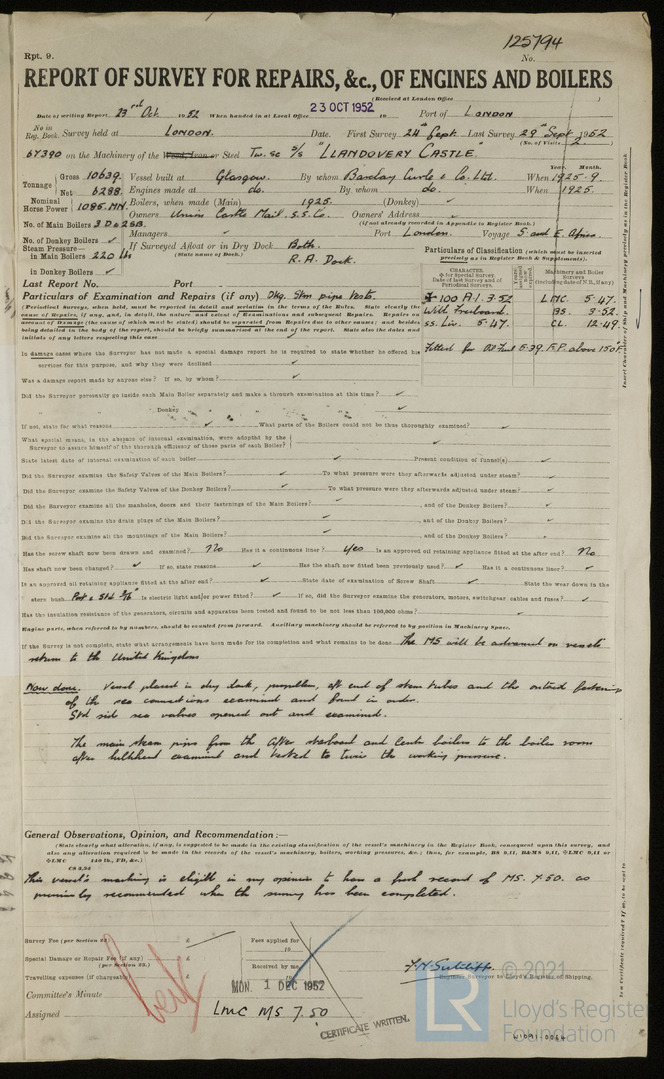 125794
Rpt. 9. No.
REPORT OF SURVEY FOR REPAIRS, &c., OF ENGINES AND BOILERS
(Received at London Office )
23 OCT 1952
Date of writing Report 23rd Oct. 1952 When handed in at Local Office 19 Port of LONDON
No in Reg. Book. Survey held at LONDON. Date. First Survey 24th Sept. Last Survey 29th Sept 1952
(No. of Visits 2 )
67390 on the Machinery of the Wood, Iron or Steel Tw. Sc S/S "LLANDOVERY CASTLE"
Tonnage Gross 10639 Vessel built at Glasgow. By whom Barclay Curle & Co. Ltd. Year. Month. When 1925-9.
Net 6288 Engines made at do. By whom do. When 1925.
Nominal Horse Power 1085 MN Boilers, when made (Main) 1925. (Donkey) ✓
No. of Main Boilers 3 D & 2 SB Owners Union Castle Mail S.S. Co. Owners' Address ✓
(if not already recorded in Appendix to Register Book.)
No. of Donkey Boilers ✓ Managers ✓ Port London. Voyage S. and E. Africa.
Steam Pressure— in Main Boilers 220 lbs If Surveyed Afloat or in Dry Dock Both.
(State name of Dock.) R. A. Dock.
in Donkey Boilers ✓
Particulars of Classification (which must be inserted precisely as in Register Book & Supplements).
Last Report No. Port
CHARACTER. ✠ for Special Survey. Date of last Survey and of Periodical Surveys.
Machinery and Boiler Surveys (including date of N.B., if any)
✠ 100 A.1. 3.52 LMC. 5.47.
With Freeboard. BS. 3.52.
SS. Liv. 5.47. CL. 12.49.
Fitted for Oil Fuel 5.39. F.P. above 150°F.
Particulars of Examination and Repairs (if any) Dkg. Stm pipe tests.
(Periodical Surveys, when held, must be reported in detail and seriatim in the terms of the Rules. State clearly the cause of Repairs, if any, and, in detail, the nature and extent of Examinations and subsequent Repairs. Repairs on account of Damage (the cause of which must be stated) should be separated from Repairs due to other causes; and besides being detailed in the body of the report, should be briefly summarised at the end of the report. State also the dates and initials of any letters respecting this case
In damage cases where the Surveyor has not made a special damage report he is required to state whether he offered his services for this purpose, and why they were declined ✓
Was a damage report made by anyone else? If so, by whom? ✓
Did the Surveyor personally go inside each Main Boiler separately and make a thorough examination at this time? ✓
" " Donkey " " " " " ✓
If not, state for what reasons ✓ What parts of the Boilers could not be thus thoroughly examined? ✓
What special means, in the absence of internal examination, were adopted by the Surveyor to assure himself of the thorough efficiency of those parts of each Boiler? ✓
State latest date of internal examination of each boiler ✓ Present condition of funnel(s) ✓
Did the Surveyor examine the Safety Valves of the Main Boilers? ✓ To what pressure were they afterwards adjusted under steam? ✓
Did the Surveyor examine the Safety Valves of the Donkey Boilers? ✓ To what pressure were they afterwards adjusted under steam? ✓
Did the Surveyor examine all the manholes, doors and their fastenings of the Main Boilers? ✓, and of the Donkey Boilers? ✓
Did the Surveyor examine the drain plugs of the Main Boilers? ✓, and of the Donkey Boilers? ✓
Did the Surveyor examine all the mountings of the Main Boilers? ✓, and of the Donkey Boilers?
Has the screw shaft now been drawn and examined? No Has it a continuous liner? Yes Is an approved oil retaining appliance fitted at the after end? No
Has shaft now been changed? ✓ If so, state reasons ✓ Has the shaft now fitted been previously used? ✓ Has it a continuous liner? ✓
Is an approved oil retaining appliance fitted at the after end? ✓ State date of examination of Screw Shaft ✓ State the wear down in the stern bush Port & Stbd Is electric light and/or power fitted? ✓ If so, did the Surveyor examine the generators, motors, switchgear, cables and fuses? ✓
Has the insulation resistance of the generators, circuits and apparatus been tested and found to be not less than 100,000 ohms? ✓
Engine parts, when referred to by numbers, should be counted from forward. Auxiliary machinery should be referred to by position in Machinery Space.
If the Survey is not complete, state what arrangements have been made for its completion and what remains to be done The MS will be advanced on vessels
return to the United Kingdom
Now done. Vessel placed in dry dock, propellers, aft end of stern tubes and the outside fastenings
of the sea connections examined and found in order.
Stbd side sea valves opened out and examined.
The main steam pipes from the after starboard and centre boilers to the boiler room
after bulkhead examined and tested to twice the working pressure.
General Observations, Opinion, and Recommendation:—
(State clearly what alteration, if any, is suggested to be made in the existing classification of the vessel's machinery in the Register Book, consequent upon this survey, and also any alteration required to be made in the records of the vessel's machinery, boilers, working pressures, &c.; thus, for example, BS 9,11, B&MS 9,11, ✠LMC 9,11 or ✠LMC 140 lb., FD, &c.)
CS 3,34
This vessel's machinery is eligible in my opinion to have a fresh record of MS. 7.50. as
previously recommended when the survey has been completed.
Survey Fee (per Section 29) £ Fees applied for 19
Special Damage or Repair Fee (if any) (per Section 29.) £
Travelling expenses (if chargeable) £ Received by me 19
F.N. Sutcliffe
Engineer Surveyor to Lloyd's Register of Shipping.
Committee's Minute MON. 1 DEC 1952
Assigned LMC MS 7.50
CERTIFICATE WRITTEN.
© 2021
LR
Lloyd's Register
Foundation
W1091-0064